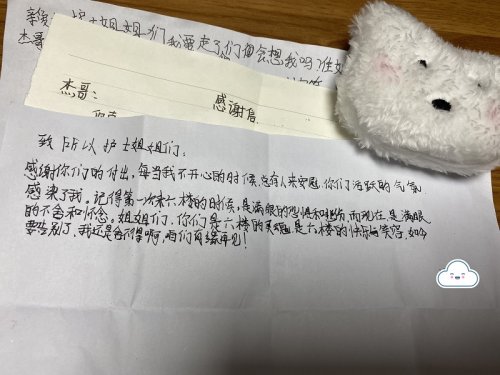 亲爱的护士姐姐们我要走了你们会想我吗？住
杰哥
杰哥：
感谢信
致所以护士姐姐们：
感谢你们的付出，每当我不开心的时候，总有人来安慰，你们活跃的气氛
感染了我。记得第一次来六楼的时候，是满眼的恐惧和，而现在，是满眼
的不舍和怀念。姐姐们，你们是六楼的灵魂，是六楼的快乐与笑容，如今
要告别了，我还是舍不得啊，咱们有缘再见！